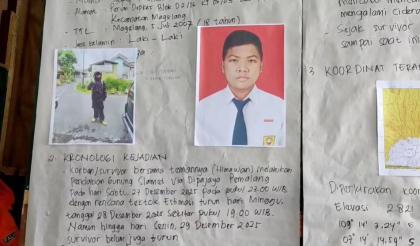 Alamat
Kecamatan Magelang
- TTL
Magelang, 5 Juli 2007 (18 tahun)
Jenis kelamin : Laki - Laki
2. KRONOLOGI KEJADIAN
- Korban/survivor bersama temannya (Himawan) melakukan
Pendakian Gunung Slamet via Dipajaya Pemalang
Pada hari Sabtu, 27 Desember 2025 Pada Pukul 23.00 WIB
dengan rencana tektok Estimasi turun hari Minggu,
tanggal 28 Desember 2025 Sekitar Pukul 19.00 WIB.
Namun hingga hari Senin, 29 Desember 2025
survivor belum juga turun
mengalami Cidera
Sejak survivor
sampai saat ini
3 KOORDINAT TERA
Diperkirakan koor
Elevasi 2.821
109° 14' 7.24"
07° 14'